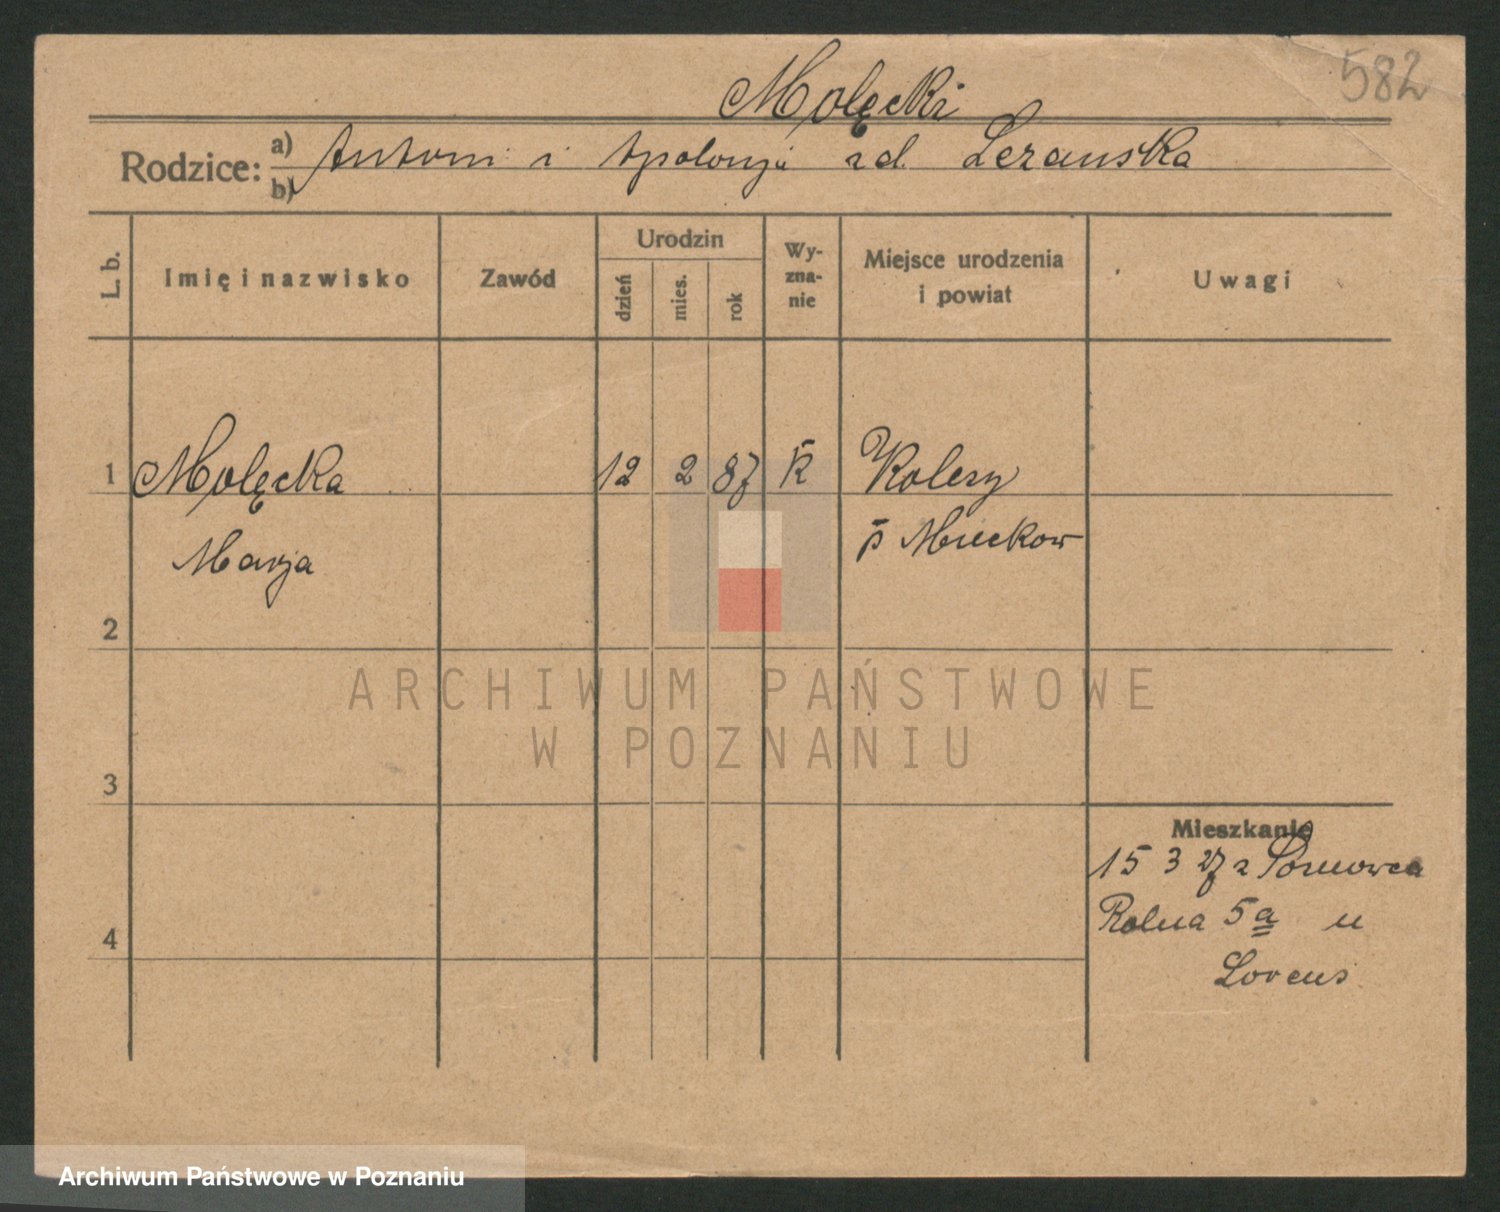 582
Molęcki
Rodzice: a) Antoni i Apolonja zd. Lezanska
b)
L. b. Imię i nazwisko Zawód Urodzin dzień mies. rok Wyznanie Miejsce urodzenia i powiat Uwagi
1 Molęcka 12 2 87 k Kolery
Marja p
2
ARCHIWUM PAŃSTWOWE
W POZNANIU
3
Mieszkanie
15 3 27 z
4 Rolna 5a u
Lorens
Archiwum Państwowe w Poznaniu